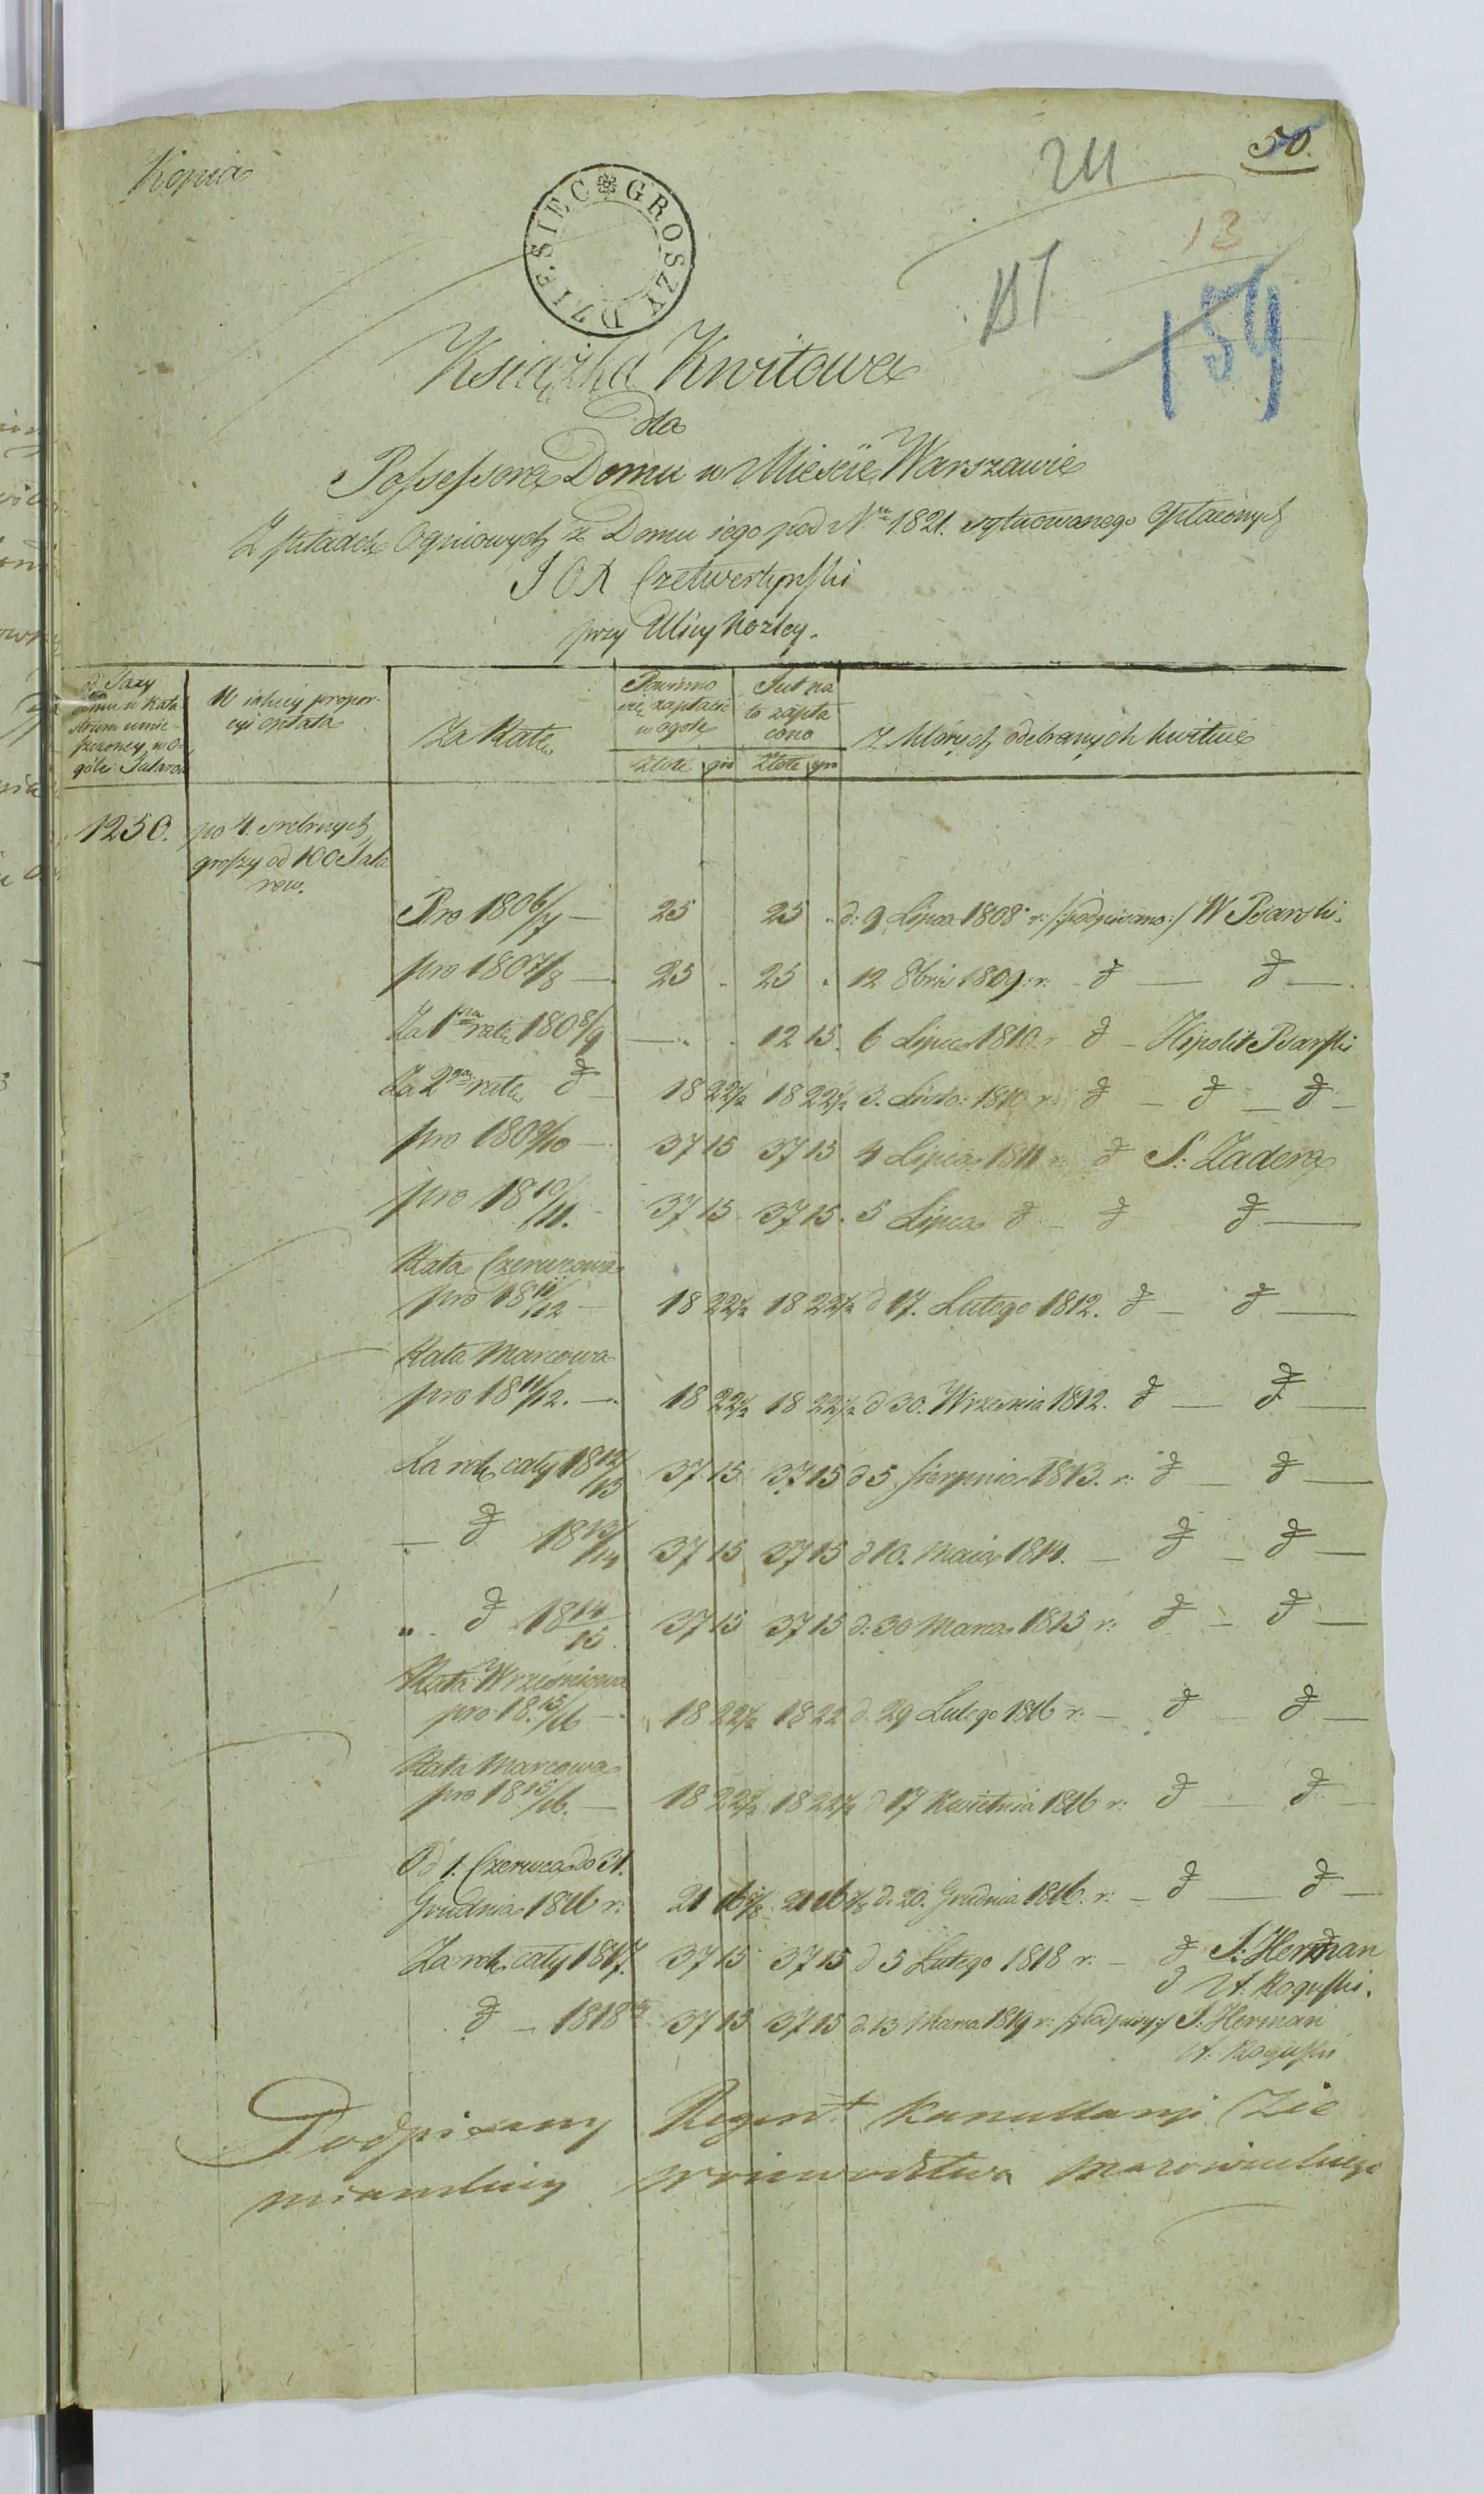 Kopia
50.
24
13
DZIESIEC GROSZY
159
Książka Kwitowa
dla
Possessora Domu w Mieście Warszawie
Z składek Ogniowych z Domu iego pod Nr 1821. sytuowanego opłaconych
J O X Czetwertyński
przy Ulicy Koźley.
od Taxy domu w Katastrum umieszczoney, w ogóle Talarów
W iakiey proporcyi opłata
Za Ratę
Powinno się zapłacić w ogóle
Złote gr
Jest na to zapłacono
Złote gr
Z których odebranych kwituie
1250. po 4. srebrnych groszy od 100 Talarow.
Pro 1806/7 — 25 25 . d: 9 Lipca 1808 r: /:podpisano:/ W Psarski.
pro 1807/8 — 25 . 25 . 12 8bris 1809. r: đ — đ —
Za 1szą ratę 1808/9 — . . 12 15. 6 Lipca 1810 r đ — Hipolit Psarski
Za 2gą ratę đ — 18 22½ 18 22½ 3. Listo: 1810 r: đ — đ — đ —
pro 1809/10 — 37 15 37 15 4 Lipca 1811 r: đ S: Zadera
pro 1810/11. — 37 15 37 15. 5 Lipca đ — đ đ —
Rata Czerwcowa
pro 1811/12 — 18 22½ 18 22½ d 17. Lutego 1812. đ — đ —
Rata Marcowa
pro 1811/12. — 18 22½ 18 22½ d 30. Września 1812. đ — đ —
Za rok cały 1812/13 37 15 37 15 d 5 Sierpnia 1813. r: đ — đ —
— đ 1813/14 37 15 37 15 d 10. Maia 1814. — đ — đ —
„ đ 1814/15. 37 15 37 15 d: 30 Marca 1815 r: đ — đ —
Rata Wrześniowa
pro 1815/16 — 18 22½ 18 22 d. 29 Lutego 1816 r. — đ — đ —
Rata Marcowa
pro 1815/16. — 18 22½ 18 22½ d 17 Kwietnia 1816 r: đ — đ —
Od 1. Czerwca do 31.
Grudnia 1816 r: 21 16 21 16 d. 20. Grudnia 1816. r: — đ — đ —
Za rok cały 1817. 37 15 37 15 d 5 Lutego 1818 r: — đ J: Herman
đ A: Roguski.
đ — 1818 37 15 37 15 d. 13 Marca 1819 r: J: Herman
A: Roguski
Podpisany Regent Kancellaryi Zie
miańskiey Woiewództwa Mazowieckiego